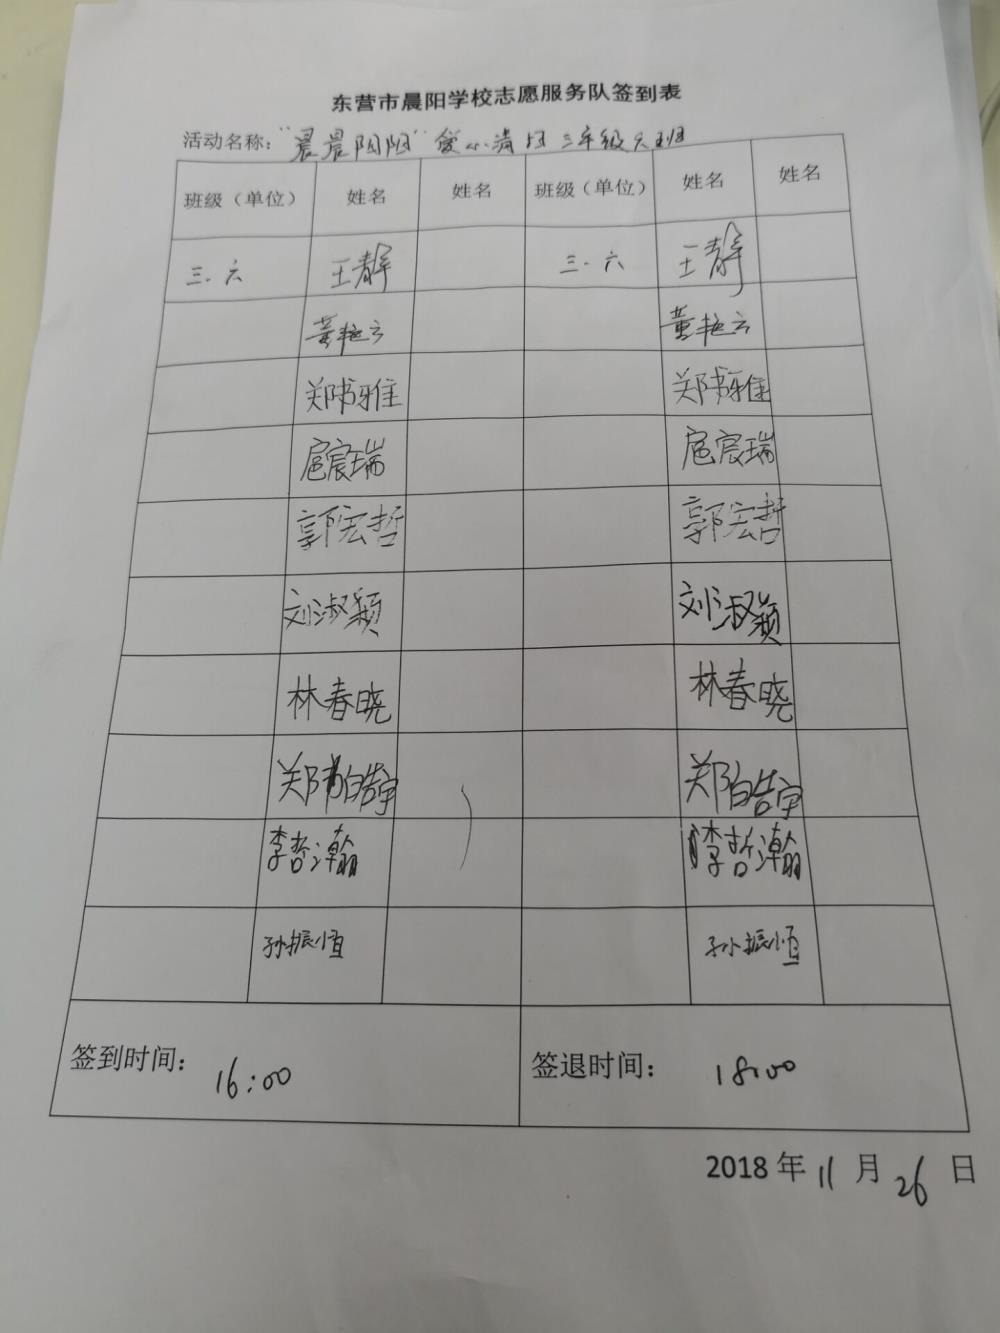 东营市晨阳学校志愿服务队签到表
活动名称：“晨晨阳阳”爱心小 三年级六班
班级（单位） 姓名 姓名 班级（单位） 姓名 姓名
三.六 王静 三.六 王静
董艳云 董艳云
郑书雅 郑书雅
扈宸瑞 扈宸瑞
郭宏哲 郭宏哲
刘淑颖 刘淑颖
林春晓 林春晓
郑皓宇 郑皓宇
李哲瀚 李哲瀚
孙振恒 孙振恒
签到时间： 16:00 签退时间： 18:00
2018 年 11 月 26 日